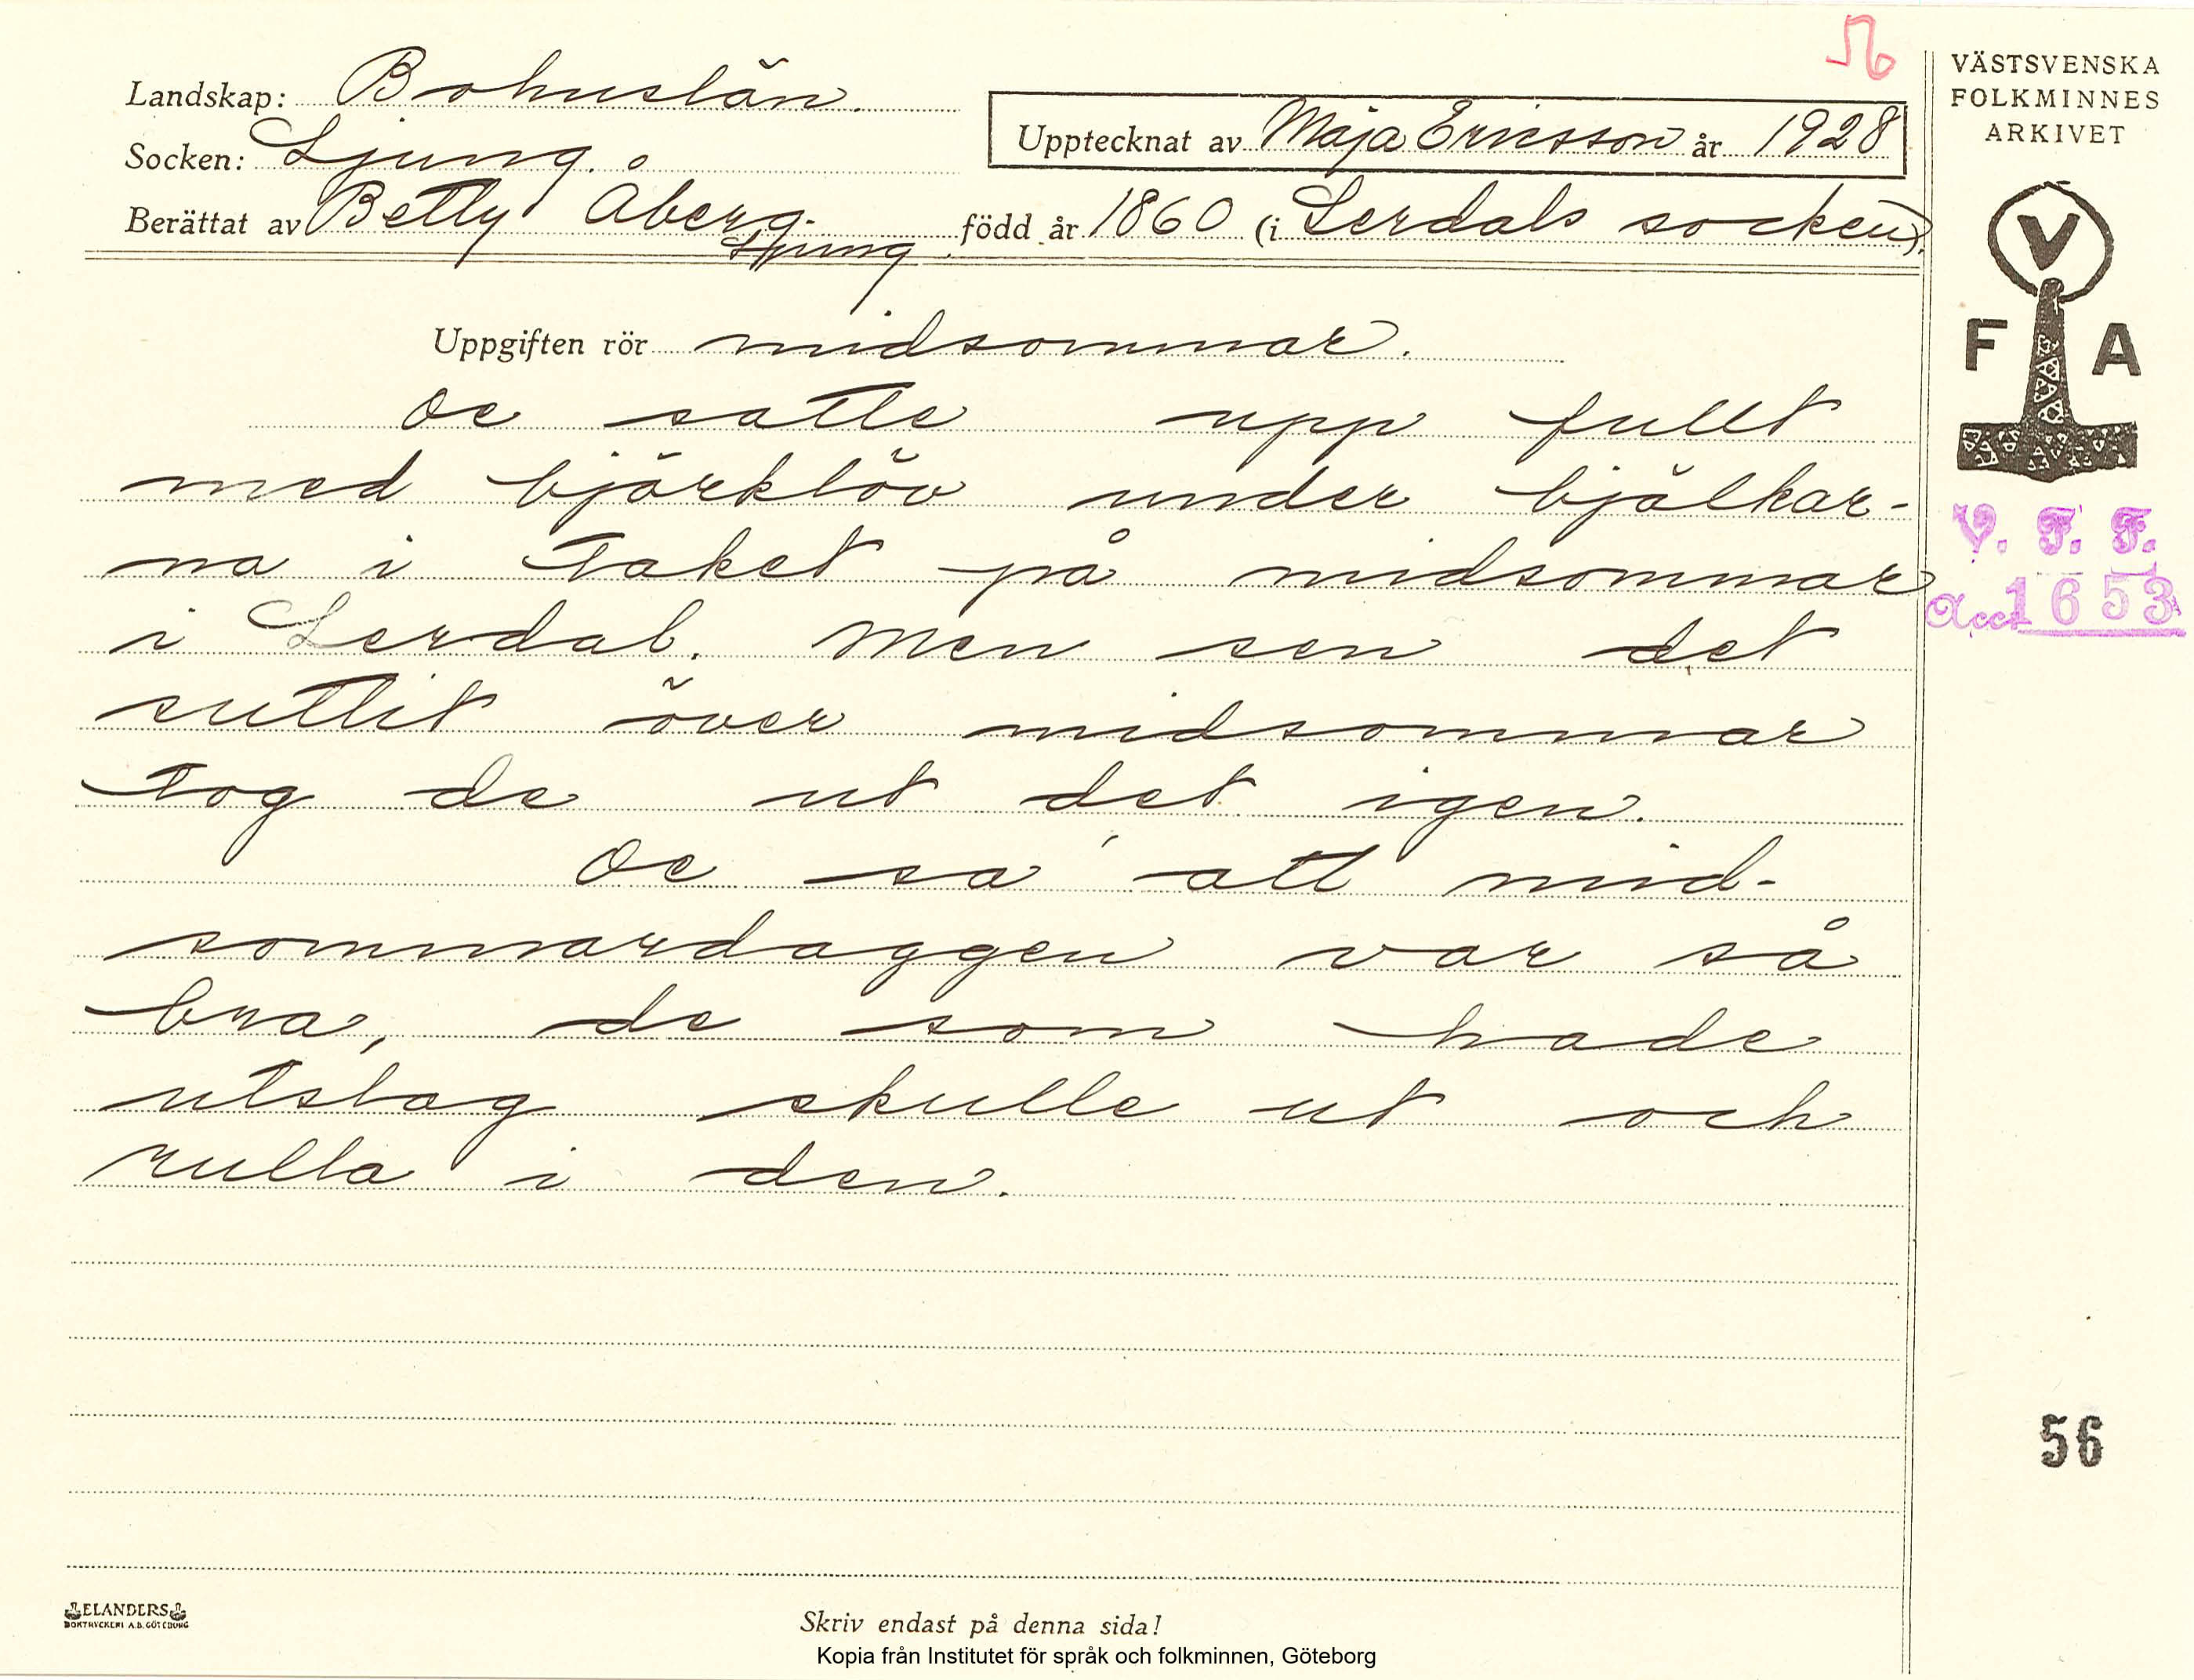 56
VÄSTSVENSKA
FOLKMINNES
ARKIVET
Landskap: Bohuslän.
Upptecknat av Maja Ericsson år 1928
Socken: Ljung.
Berättat av Betty Åberg. född år 1860 (i Lerdals socken).
Ljung.
V
F A
Uppgiften rör midsommar.
De satte upp fullt
med björklöv under bjälkar-
na i taket på midsommar
i Lerdal. Men sen det
suttit över midsommar
tog de ut det igen.
De sa' att mid-
sommardaggen var så
bra, de som hade
utslag skulle ut och
rulla i den.
V. F. F.
Acc. 1653
56
ELANDERS
BOKTRYCKERI A.B. GÖTEBORG
Skriv endast på denna sida!
Kopia från Institutet för språk och folkminnen, Göteborg